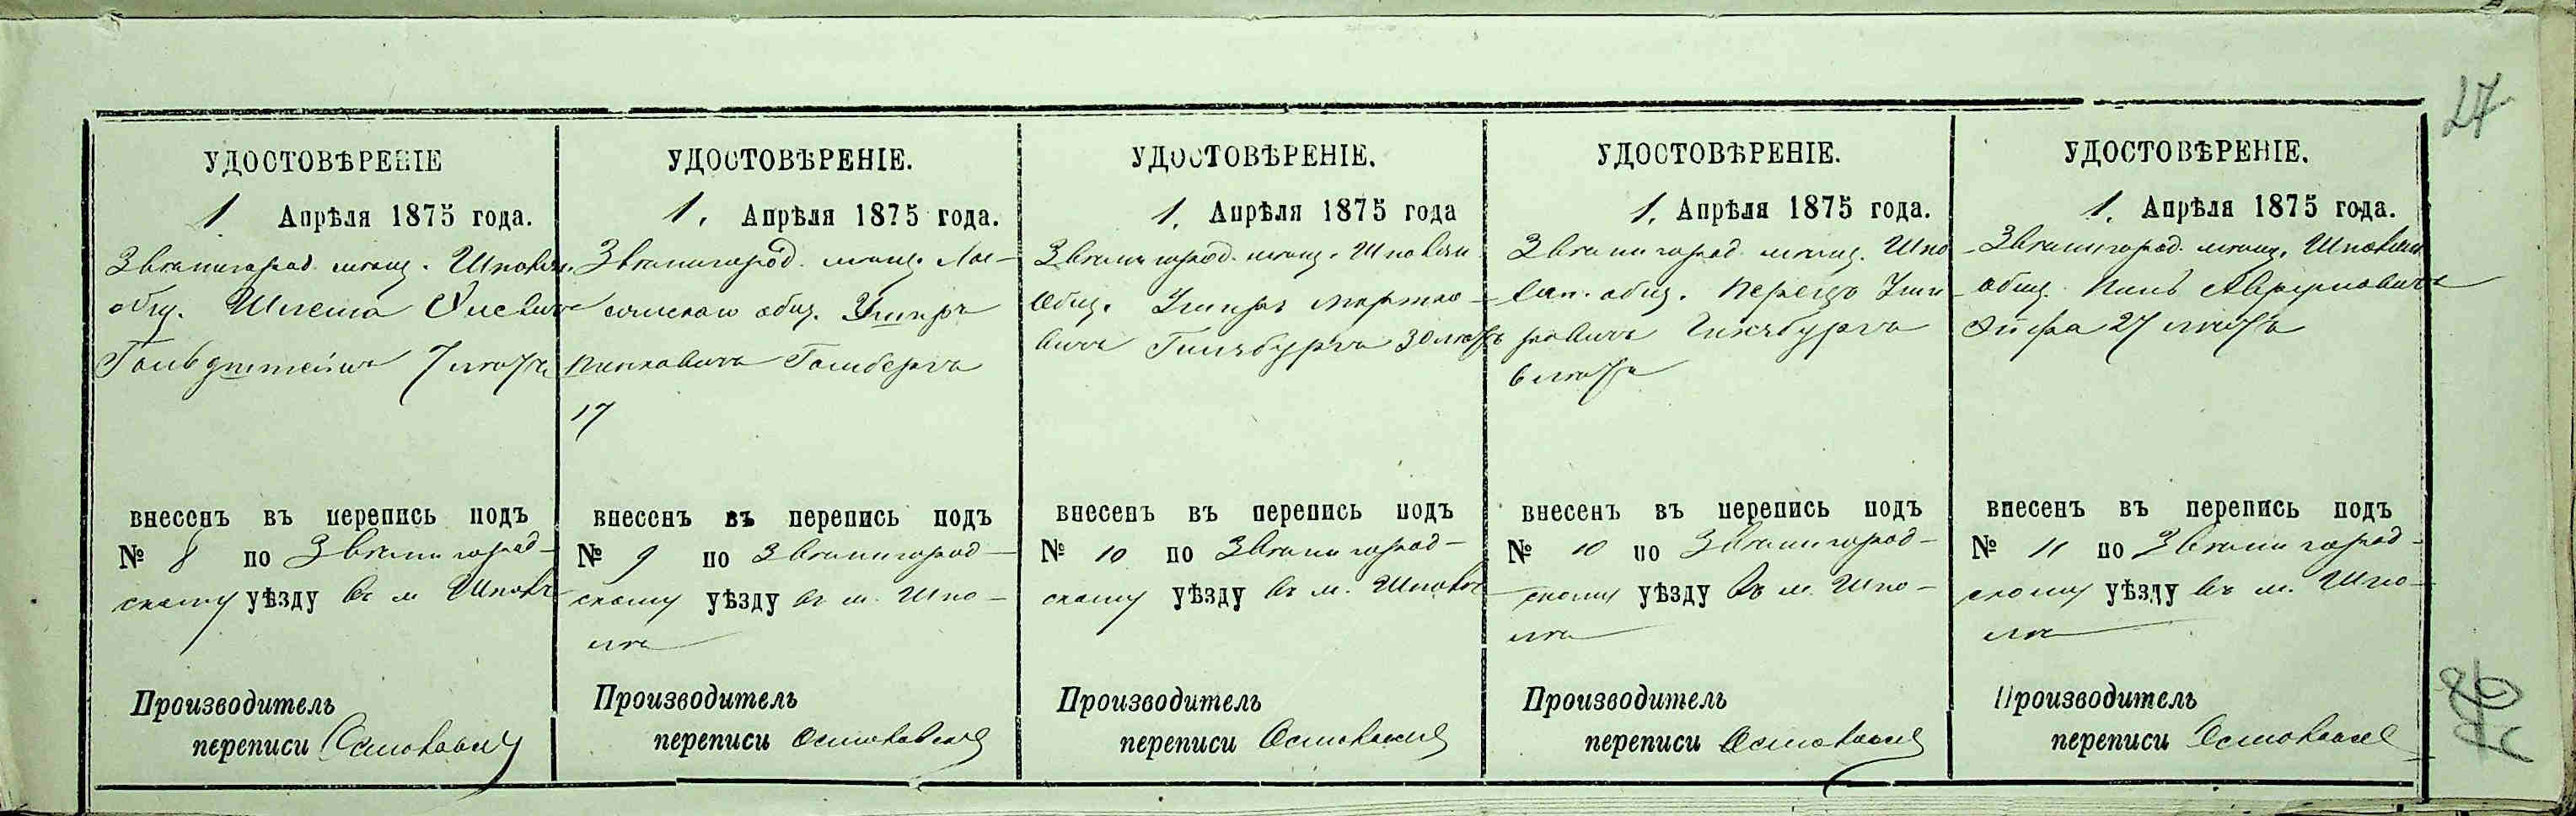 27
УДОСТОВѢРЕНІЕ
1 Апрѣля 1875 года.
Звенигород. мѣщ. Шполян.
общ. Шлема
Гольдштейнъ 7 лѣтъ
внесенъ въ перепись подъ
№ 8 по Звенигород-
скому уѣзду въ м Шполѣ
Производитель
переписи
УДОСТОВѢРЕНІЕ.
1. Апрѣля 1875 года.
Звенигород. мѣщ.
общ.
Пинковичъ
17
внесенъ въ перепись подъ
№ 9 по Звенигород-
скому уѣзду въ м. Шпо-
лѣ
Производитель
переписи
УДОСТОВѢРЕНІЕ.
1. Апрѣля 1875 года
Звенигород. мѣщ. Шполян
общ.
Гинзбургъ 30 лѣтъ
внесенъ въ перепись подъ
№ 10 по Звенигород-
скому уѣзду въ м. Шполѣ
Производитель
переписи
УДОСТОВѢРЕНІЕ.
1. Апрѣля 1875 года.
Звенигород. мѣщ. Шпо
лян. общ. Перецъ
Гинзбургъ
6 лѣтъ
внесенъ въ перепись подъ
№ 10 по Звенигород-
скому уѣзду въ м. Шпо-
лѣ
Производитель
переписи
УДОСТОВѢРЕНІЕ.
1. Апрѣля 1875 года.
Звенигород. мѣщ. Шполян
общ.
27 лѣтъ
внесенъ въ перепись подъ
№ 11 по Звенигород-
скому уѣзду въ м. Шпо-
лѣ
Производитель
переписи